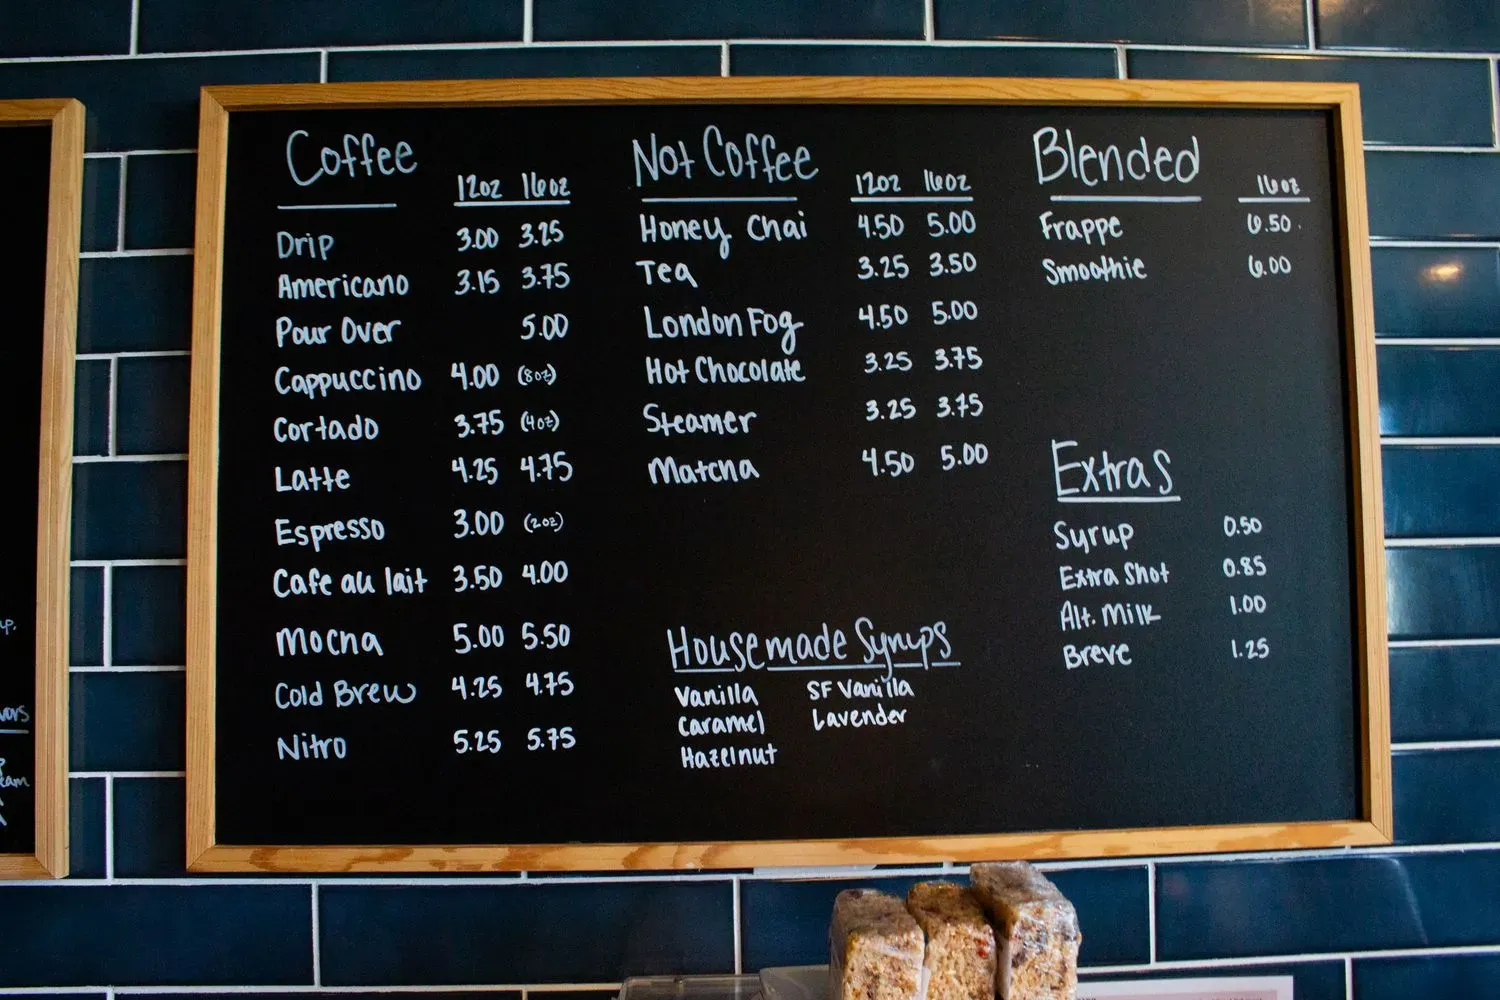 Coffee 12oz 16oz
Drip 3.00 3.25
Americano 3.15 3.75
Pour Over 5.00
Cappuccino 4.00 (8oz)
Cortado 3.75 (4oz)
Latte 4.25 4.75
Espresso 3.00 (2oz)
Cafe au lait 3.50 4.00
Mocha 5.00 5.50
Cold Brew 4.25 4.75
Nitro 5.25 5.75
Not Coffee 12oz 16oz
Honey Chai 4.50 5.00
Tea 3.25 3.50
London Fog 4.50 5.00
Hot Chocolate 3.25 3.75
Steamer 3.25 3.75
Matcha 4.50 5.00
Housemade Syrups
Vanilla SF Vanilla
Caramel Lavender
Hazelnut
Blended 16oz
Frappe 6.50
Smoothie 6.00
Extras
Syrup 0.50
Extra Shot 0.85
Alt. Milk 1.00
Breve 1.25